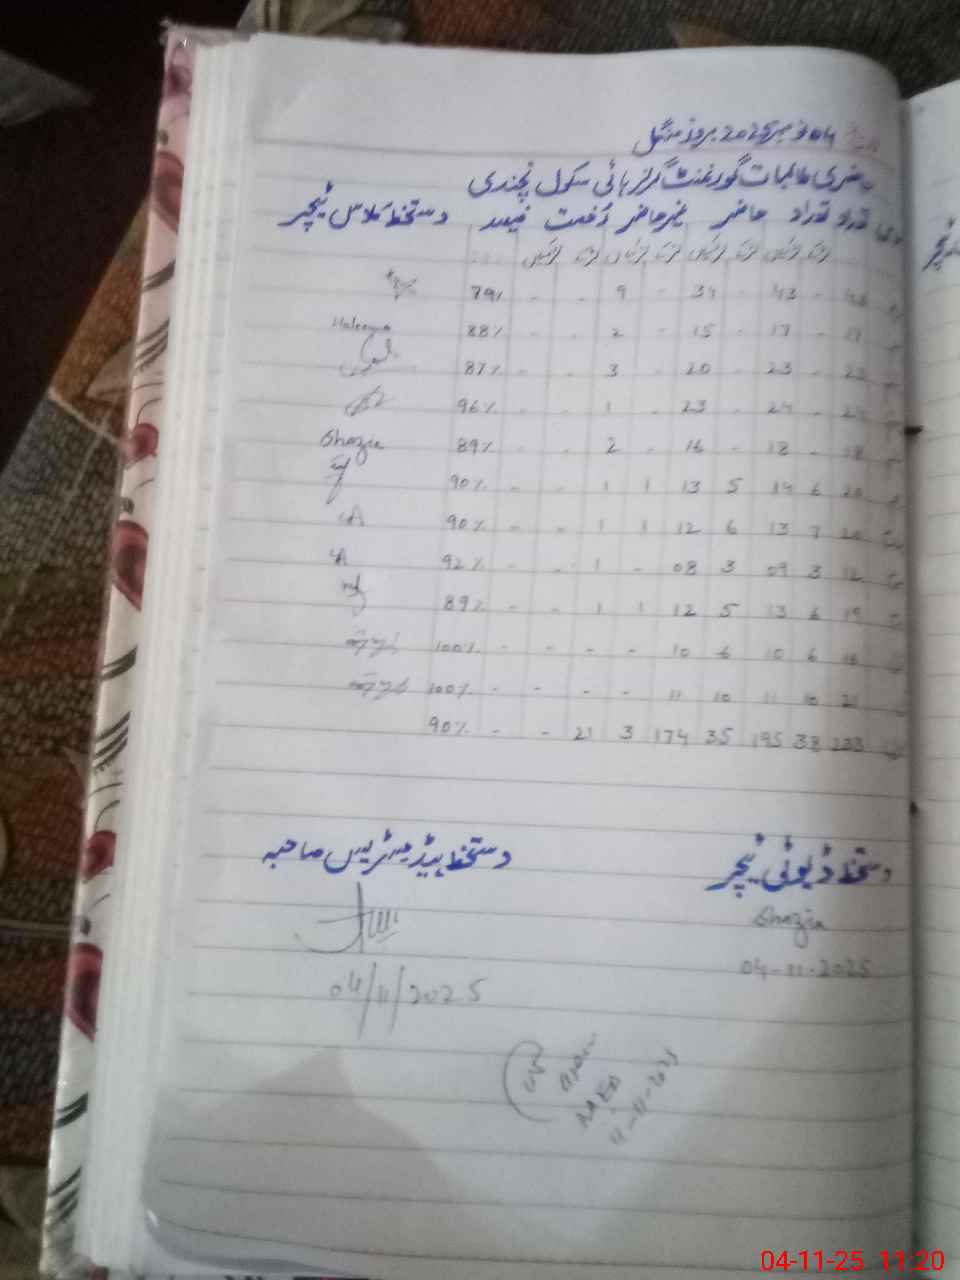 04 نومبر 2025 بروز منگل
حاضری طالبات گورنمنٹ گرلز ہائی سکول پنجندی
تعداد تعداد حاضر غیر حاضر رخصت فیصد دستخط کلاس ٹیچر
لڑکے لڑکیاں لڑکے لڑکیاں لڑکے لڑکیاں لڑکے لڑکیاں
43 - 43 - 34 - 9 - - 79%
17 - 17 - 15 - 2 - - 88% Haleema
23 - 23 - 20 - 3 - - 87%
24 - 24 - 23 - 1 - - 96%
18 - 18 - 16 - 2 - - 89% Shazia
20 6 14 5 13 1 1 - - 90%
20 7 13 6 12 1 1 - - 90%
12 3 09 3 08 - 1 - - 92%
19 6 13 5 12 1 1 - - 89%
16 6 10 6 10 - - - - 100%
21 10 11 10 11 - - - - 100%
233 38 195 35 174 3 21 - - 90%
دستخط ڈیوٹی ٹیچر
Shazia
04-11-2025
دستخط ہیڈ مسٹریس صاحبہ
04/11/2025
AAEO
4-11-2025
04-11-25 11:20